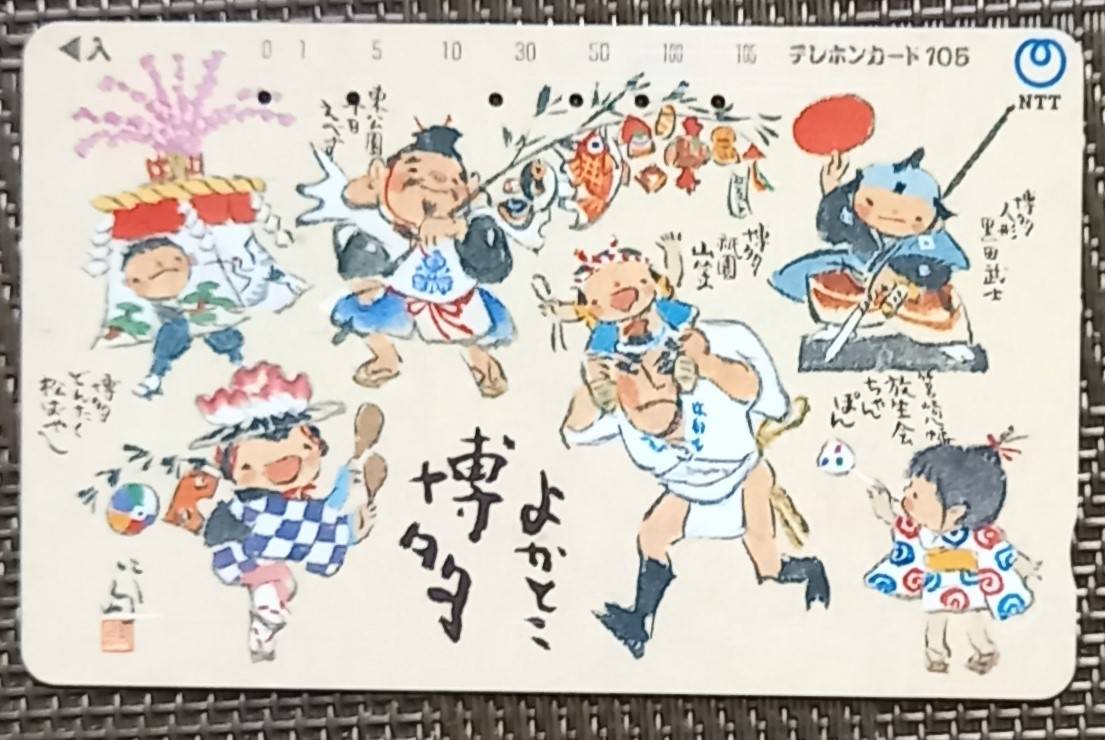 ◀入
0 1 5 10 30 50 100 105
テレホンカード105
NTT
東公園
十日
えべす
博多
祇園
山笠
博多
人形
黒田武士
博多
どんたく
松ばやし
筥崎八幡
放生会
ちゃん
ぽん
よかとこ
博多